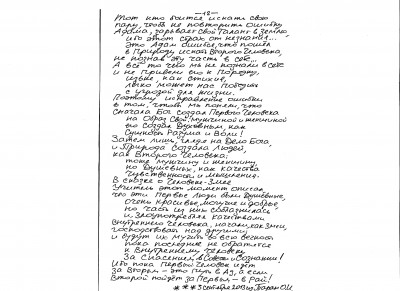 — 12 —
Тот кто боится искать свою
пару, чтоб не повторить ошибку
Адама, зарывает свой Талант в Землю,
ибо этот страх от незнания...
Это Адам ошибся, что пошёл
в Природу искать Второго Человека,
не познав эту часть в себе...
А всё то чего мы не познали в себе
и не привели его к Порядку,
извне, как стихия,
легко может нас победить
с угрозой для жизни.
Поэтому исправление ошибки
в том, чтобы мы поняли, что
сначала Бог создал Первого Человека
на Образ Свой: мужчиной и женщиной
Он создал Духовным, как
сущность Разума и Воли!
Затем лишь, глядя на Дело Бога
и Природа создала людей,
как Второго Человека;
тоже мужчину и женщину,
но Душевных, как качества
чувственности и мышления.
В сказке о Человеке-Змее
Учитель этот момент описал,
что эти Первые Люди были Душевные,
очень красивые, могучие и добрые,
но часть из них соблазнилась
и злоупотребляя качествами
Внутреннего Человека, начали, как змеи,
господствовать над другими,
и будут их мучить во всю вселенную,
пока последние не обратятся
к Внутреннему Человеку
за Спасением, в Совести и Сознании!
Ибо пока Первый Человек идёт
за Вторым – это путь в Ад, а если
Второй пойдёт за Первым – в Рай!
* * * 3 октября 2013 г. Баран О.И.